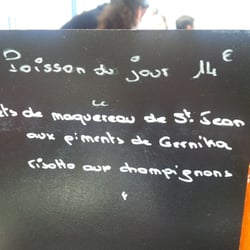 Poisson du jour 14€
ts de maquereau de St. Jean
aux piments de Gernika
risotto aux champignons